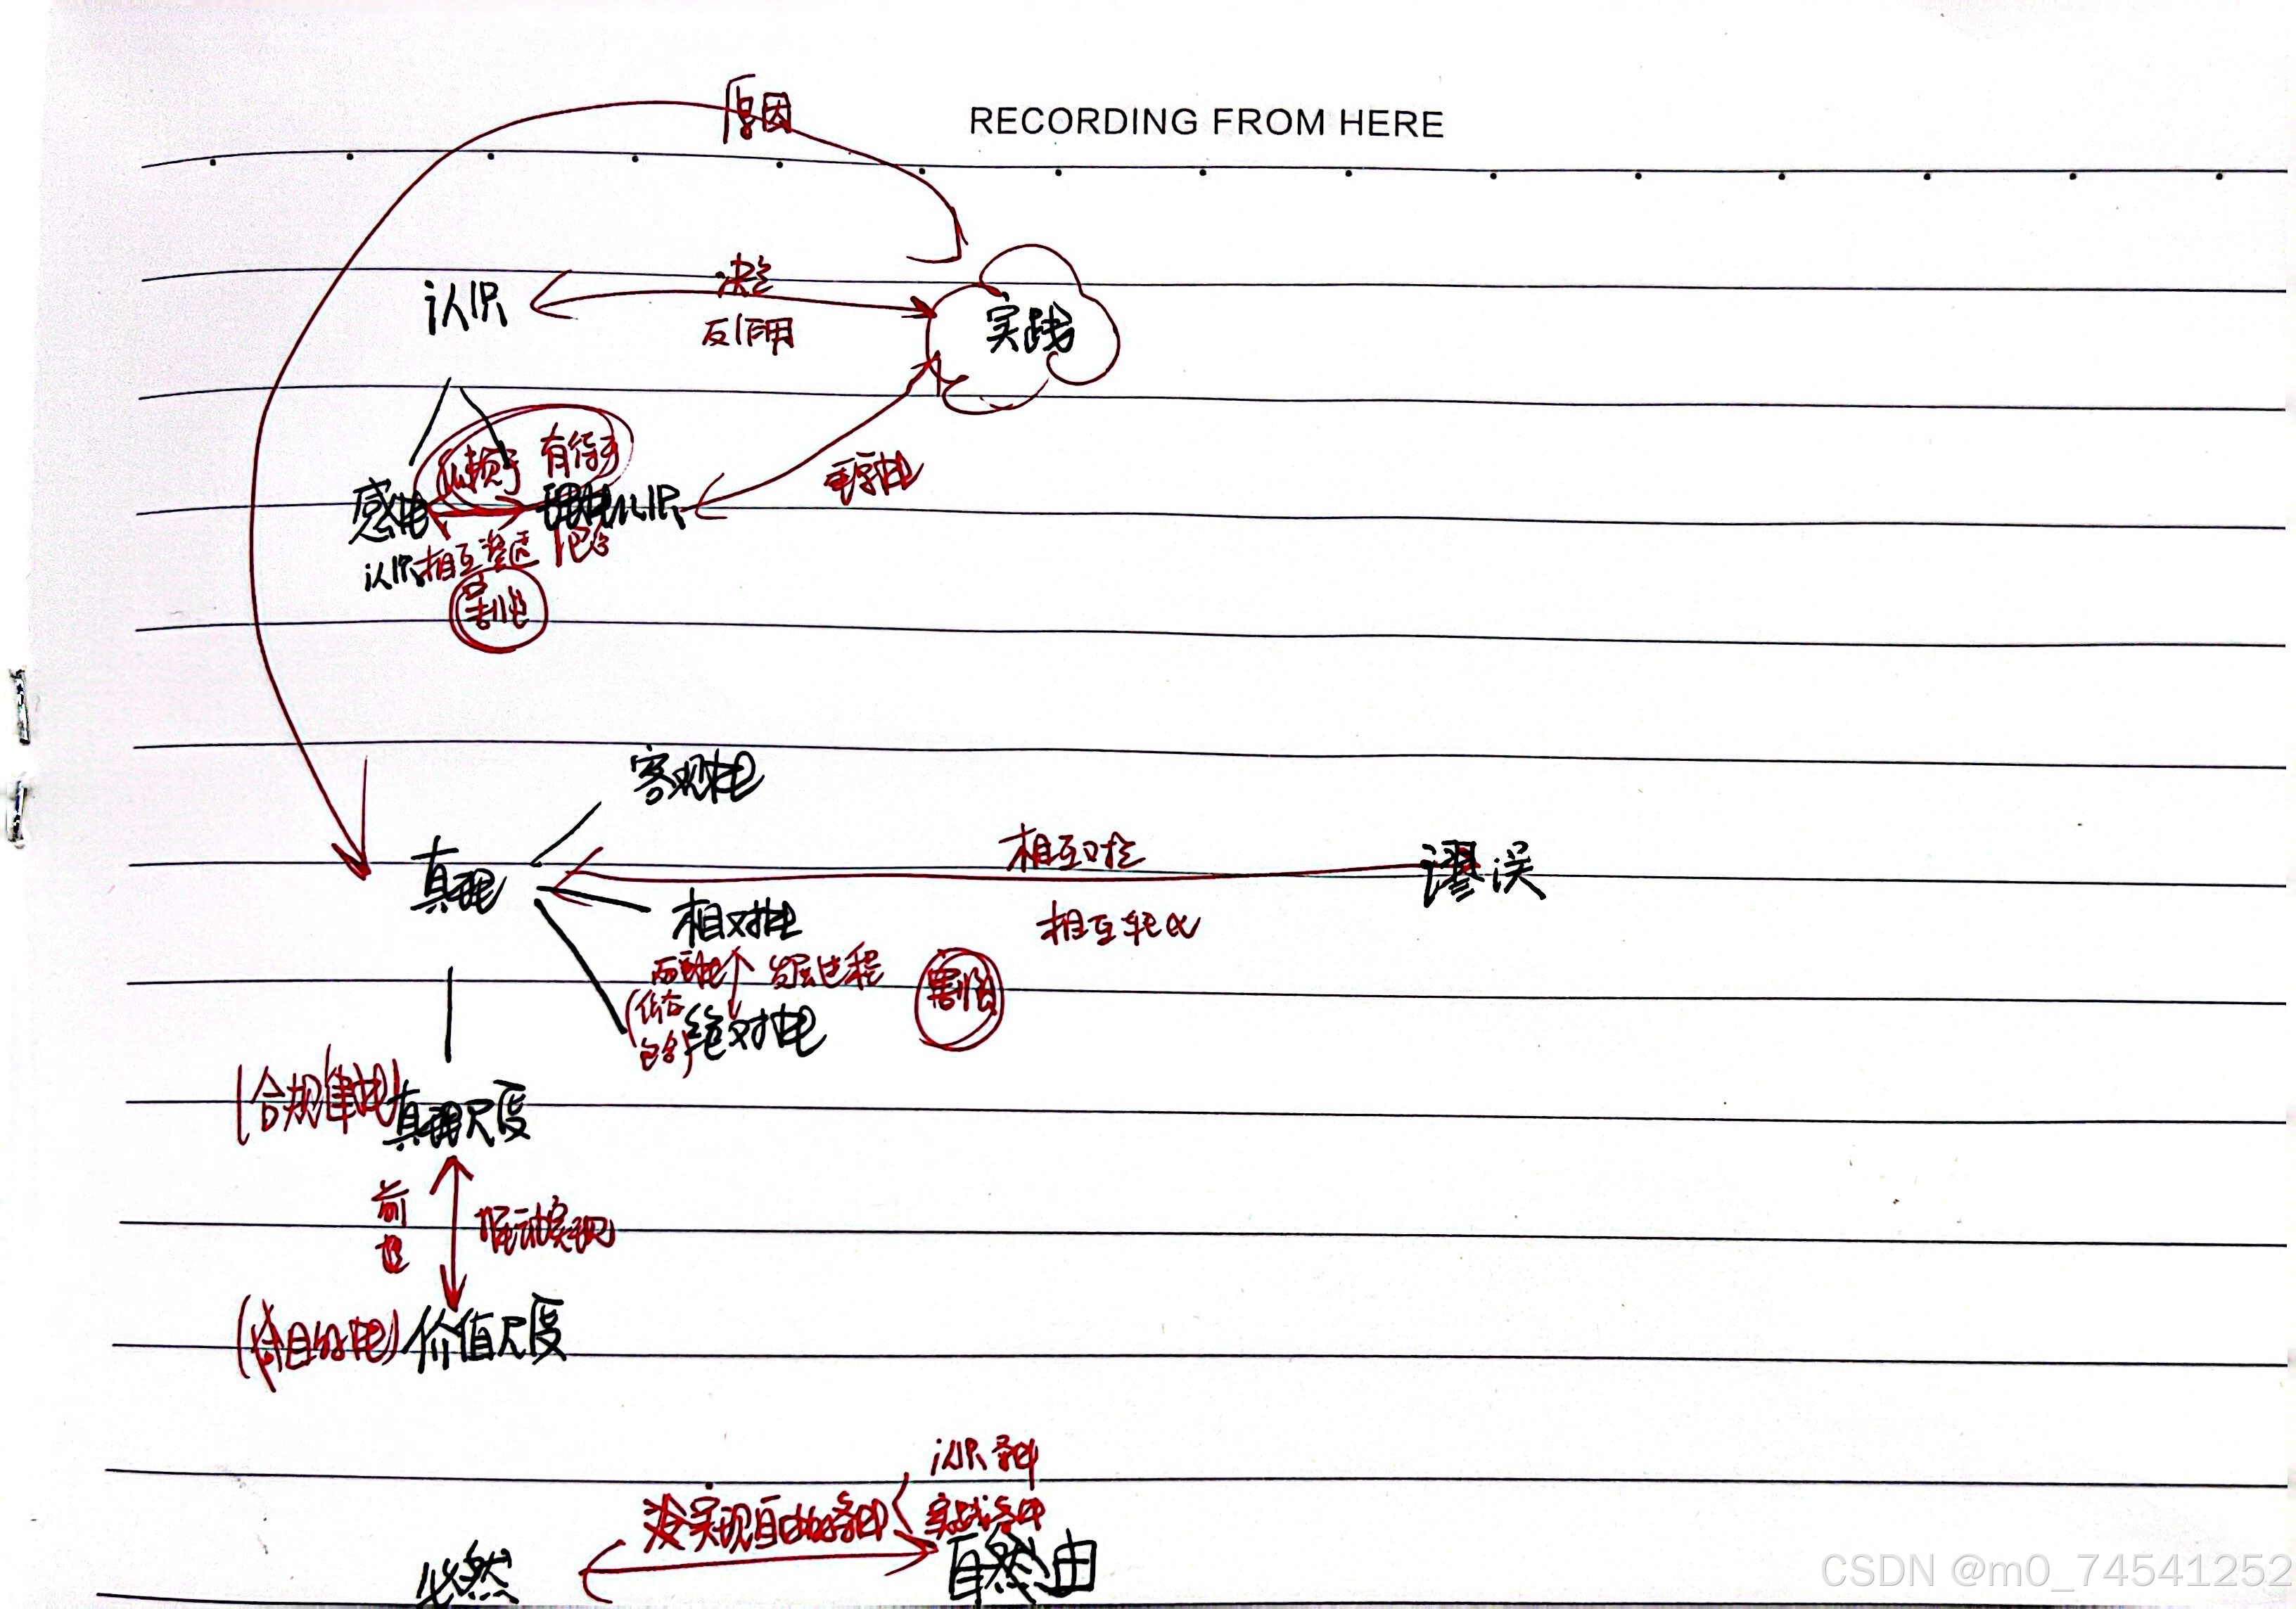 原因
RECORDING FROM HERE
认识
决定
反作用
实践
依赖于 有待于
感性
理性认识
认识
相互渗透 包含
割裂
客观性
真理
相互对立
谬误
相对性
相互转化
发展过程
割裂
绝对性
包含)
(合规律性)
真理尺度
前提
推动实现
(合目的性) 价值尺度
认识条件
实现自由的条件
实践条件
必然
自 由
CSDN @m0_74541252